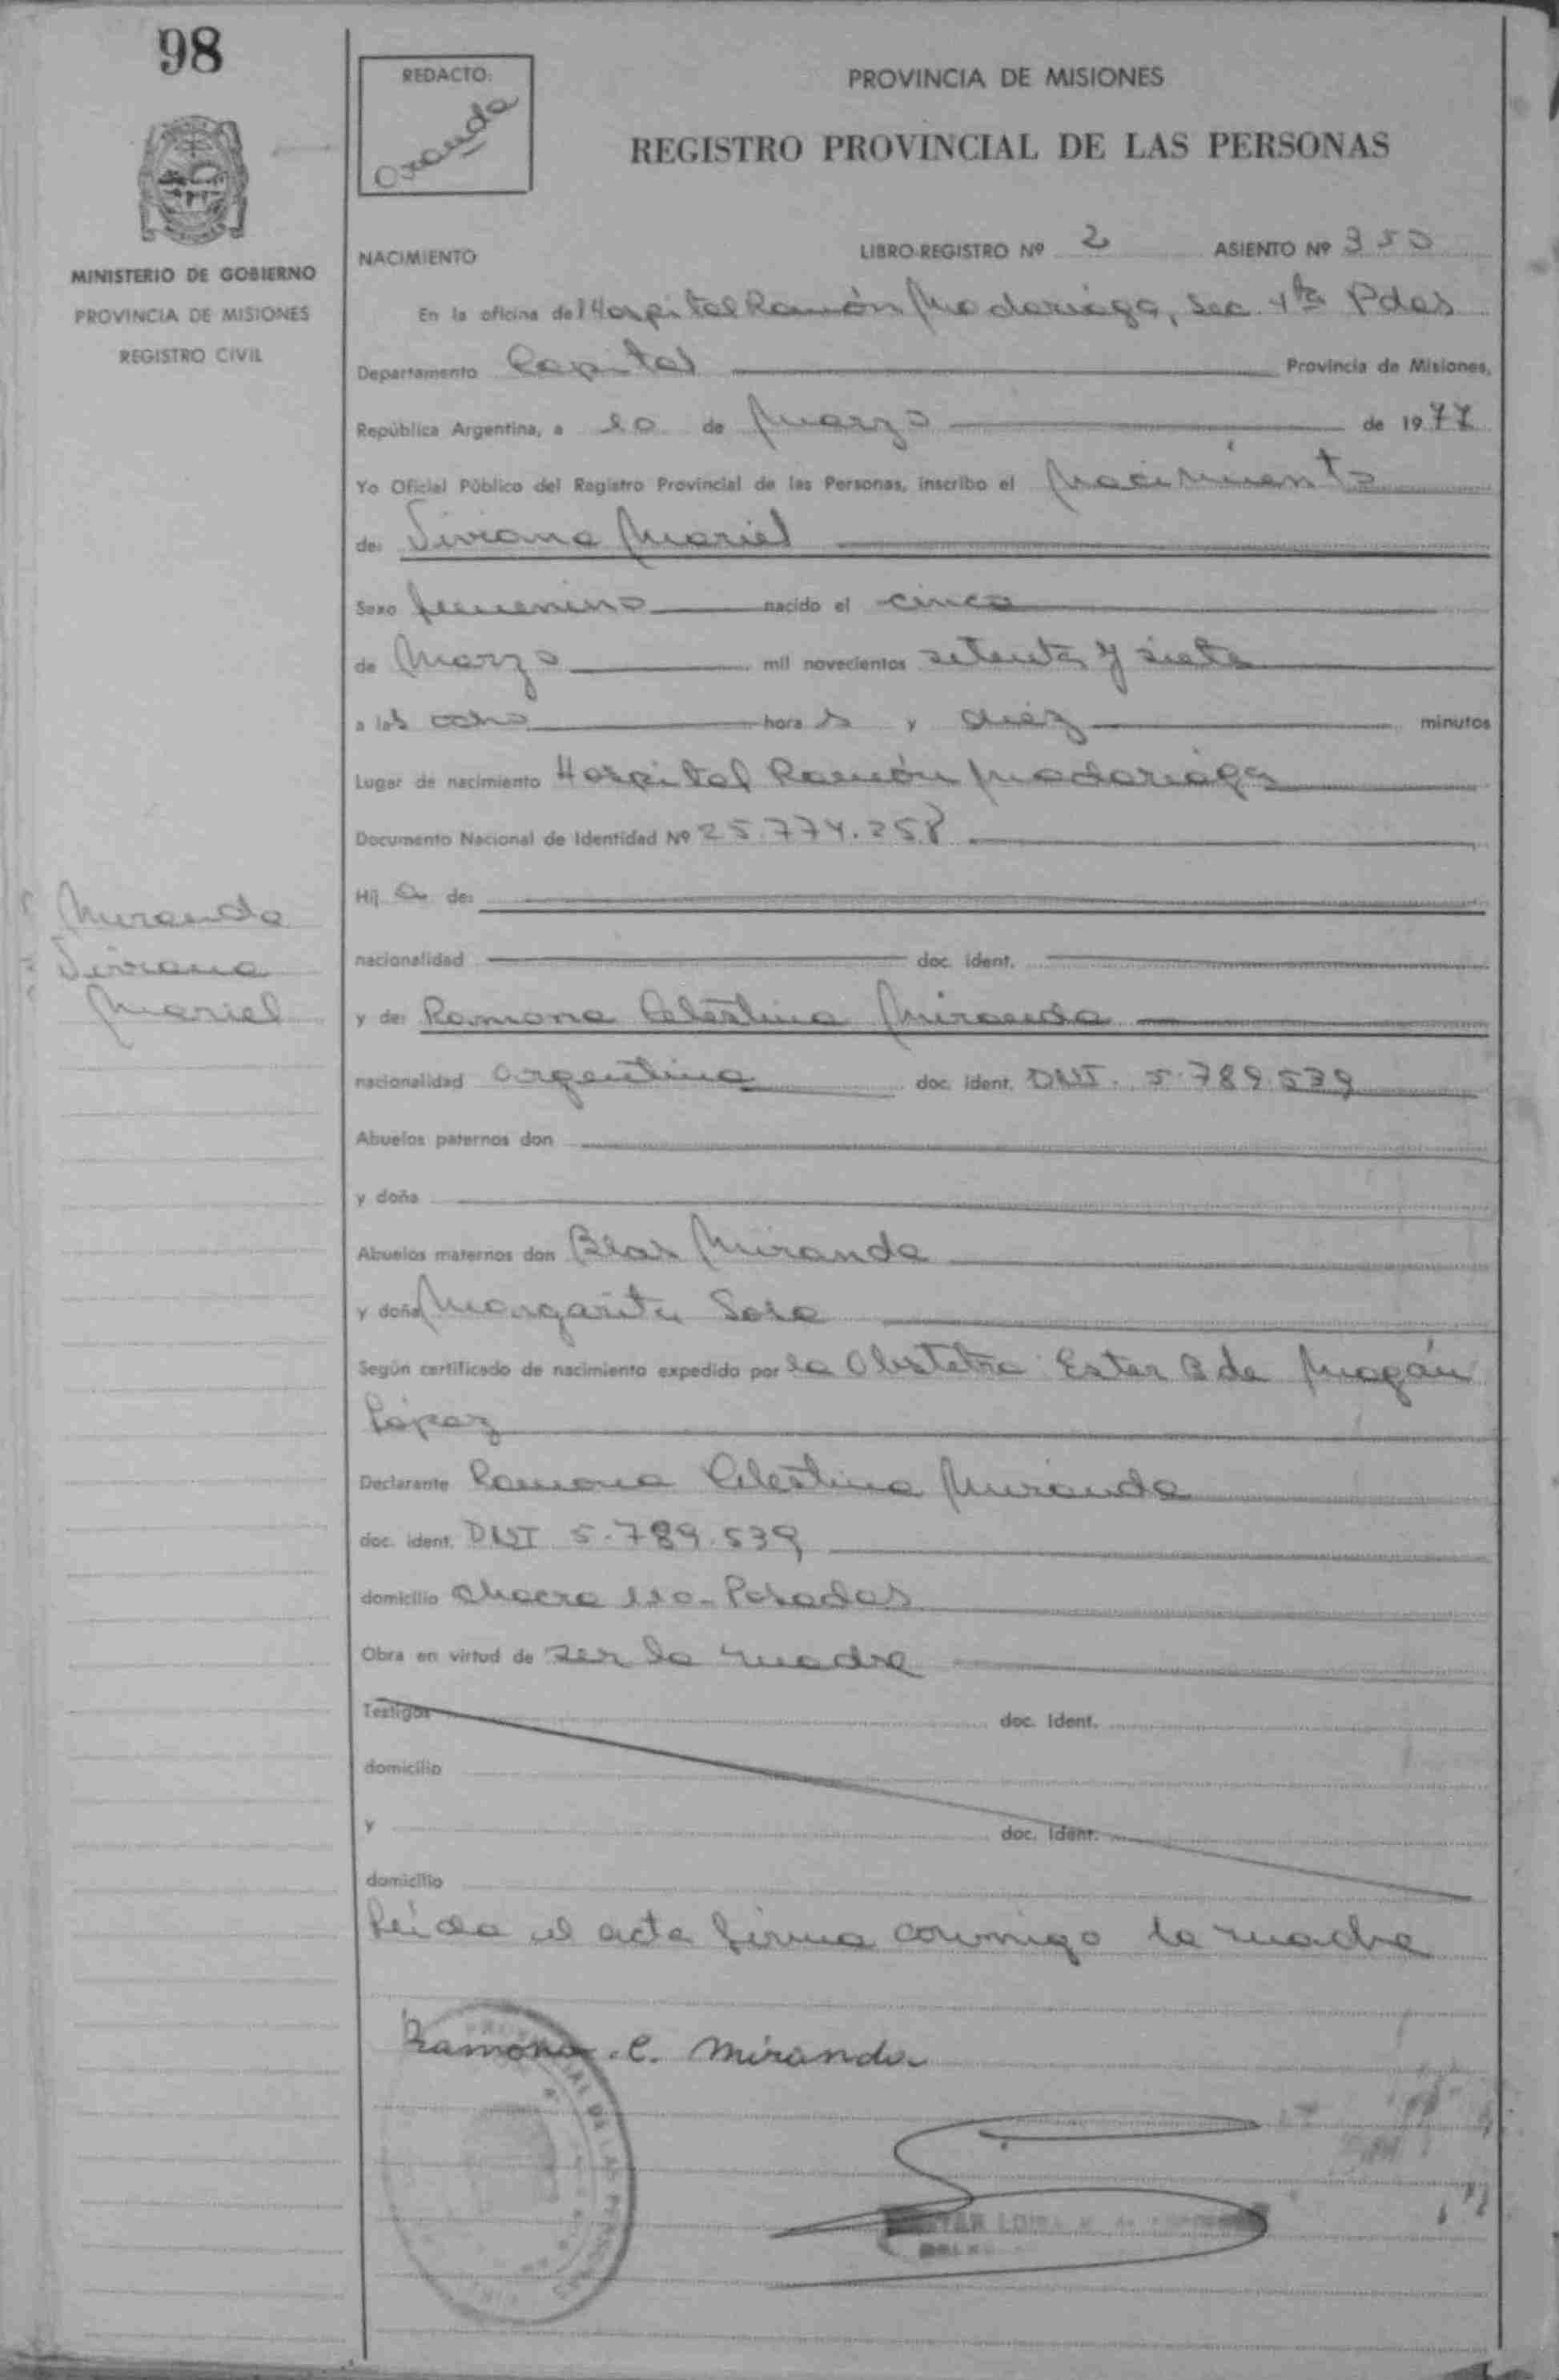 98
REDACTO:
Oranda
PROVINCIA DE MISIONES
REGISTRO PROVINCIAL DE LAS PERSONAS
MINISTERIO DE GOBIERNO
PROVINCIA DE MISIONES
REGISTRO CIVIL
NACIMIENTO LIBRO-REGISTRO Nº 2 ASIENTO Nº 350
En la oficina del Hospital Ramón Madariaga, Sec. 4ta Pdas
Departamento Capital Provincia de Misiones,
República Argentina, a 10 de Marzo de 1977
Yo Oficial Público del Registro Provincial de las Personas, inscribo el Nacimiento
de: Viviana Mariel
Sexo femenino nacido el cinco
de Marzo mil novecientos setenta y siete
a las ocho hora s y diez minutos
Lugar de nacimiento Hospital Ramón Madariaga
Documento Nacional de Identidad Nº 25.774.258
Hij a de:
nacionalidad doc. ident.
Miranda
Viviana
Mariel
y de: Ramona Celestina Miranda
nacionalidad argentina doc. ident. DNI. 5.789.539
Abuelos paternos don
y doña
Abuelos maternos don Blas Miranda
y doña Margarita Sosa
Según certificado de nacimiento expedido por la Obstetra Ester B de Magán
López
Declarante Ramona Celestina Miranda
doc. ident. DNI 5.789.539
domicilio Chacra 110 - Posadas
Obra en virtud de ser la madre
Testigos doc. Ident.
domicilio
y doc. Ident.
domicilio
Leída el acta firma conmigo la madre
Ramona .C. Miranda